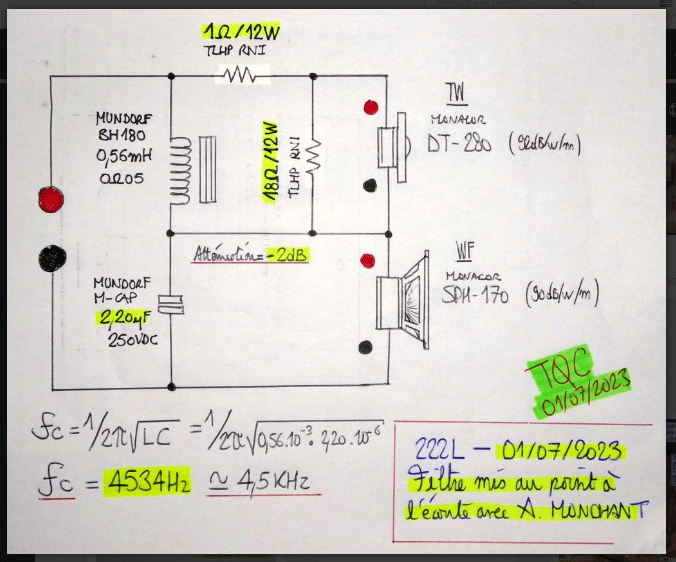 1Ω/12W
TLHP RNI
MUNDORF
BH180
0,56mH
0Ω05
18Ω/12W
TLHP RNI
TW
MONACOR
DT-280 (92dB/w/m)
Atténuation = -2dB
MUNDORF
M-CAP
2,20µF
250VDC
WF
MONACOR
SPH-170 (90dB/w/m)
TQC
01/07/2023
fc = 1/2π√LC = 1/2π√0,56.10⁻³ . 2,20.10⁻⁶
fc = 4534Hz ≃ 4,5KHz
222L – 01/07/2023
Filtre mis au point à
l'écoute avec A. MONCHANT